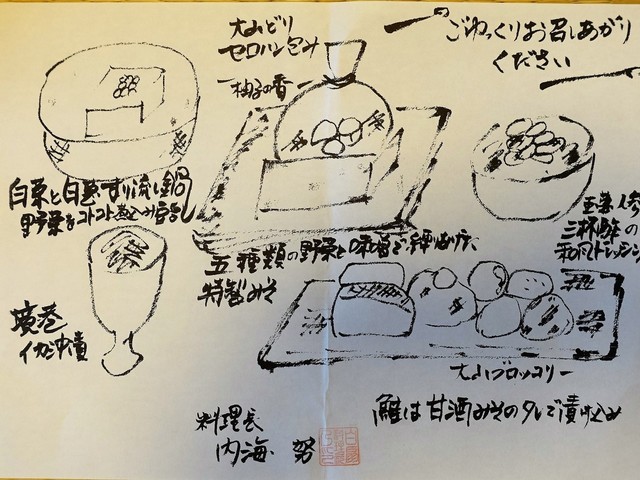 ごゆっくりお召しあがり
ください
大山どり
セロハン包み
柚子の香
白菜と白
すり流し鍋
野菜をコトコト煮込み
五種類の野菜と味噌で練りあげた
特製みそ
三杯酢の
和風ドレッシング
イカ沖漬
大山ブロッコリー
鮭は甘酒みそのタレで漬け込み
料理長
内海 努